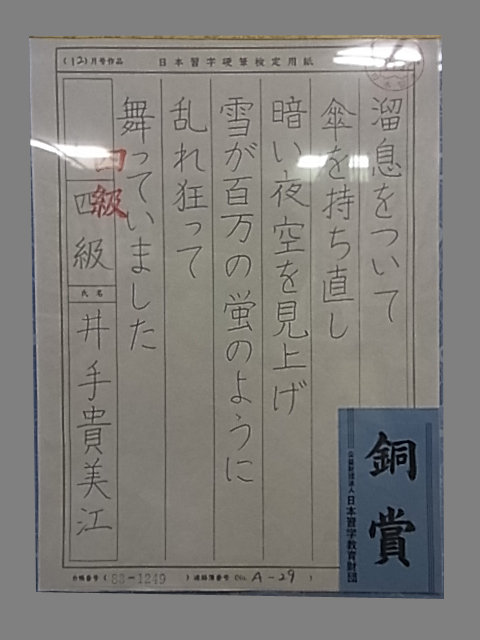 (12)月号作品 日本習字硬筆検定用紙
溜息をついて
傘を持ち直し
暗い夜空を見上げ
雪が百万の蛍のように
乱れ狂って
舞っていました
四級
四級
氏名
井手貴美江
銅賞
公益財団法人 日本習字教育財団
合帳番号( 83-1249 ) 連絡簿番号(No. A-29 )